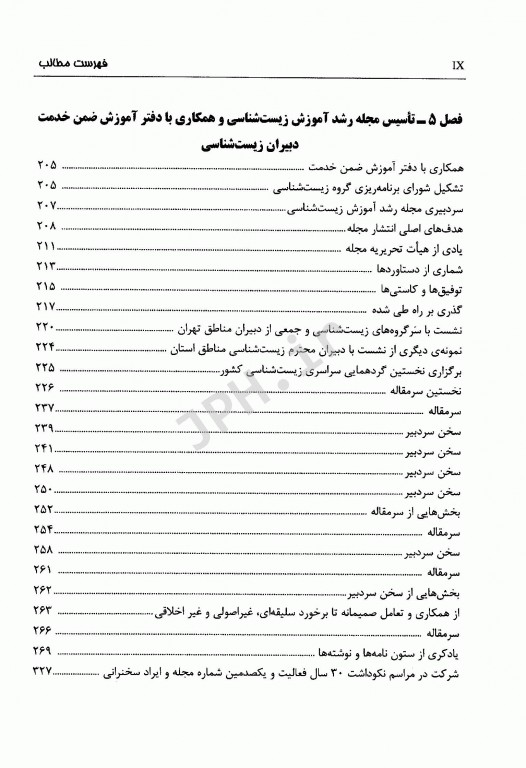 IX فهرست مطالب
فصل ۵ ـ تأسیس مجله رشد آموزش زیست‌شناسی و همکاری با دفتر آموزش ضمن خدمت
دبیران زیست‌شناسی
همکاری با دفتر آموزش ضمن خدمت ۲۰۵
تشکیل شورای برنامه‌ریزی گروه زیست‌شناسی ۲۰۵
سردبیری مجله رشد آموزش زیست‌شناسی ۲۰۷
هدف‌های اصلی انتشار مجله ۲۰۸
یادی از هیأت تحریریه مجله ۲۱۱
شماری از دستاوردها ۲۱۳
توفیق‌ها و کاستی‌ها ۲۱۵
گذری بر راه طی شده ۲۱۷
نشست با سرگروه‌های زیست‌شناسی و جمعی از دبیران مناطق تهران ۲۲۰
نمونه‌ی دیگری از نشست با دبیران محترم زیست‌شناسی مناطق استان ۲۲۴
برگزاری نخستین گردهمایی سراسری زیست‌شناسی کشور ۲۲۵
نخستین سرمقاله ۲۲۶
سرمقاله ۲۳۷
سخن سردبیر ۲۳۹
سخن سردبیر ۲۴۱
سخن سردبیر ۲۴۸
سخن سردبیر ۲۵۰
بخش‌هایی از سرمقاله ۲۵۲
سرمقاله ۲۵۴
سخن سردبیر ۲۵۸
سرمقاله ۲۶۱
بخش‌هایی از سخن سردبیر ۲۶۲
از همکاری و تعامل صمیمانه تا برخورد سلیقه‌ای، غیراصولی و غیر اخلاقی ۲۶۳
سرمقاله ۲۶۶
یادکری از ستون نامه‌ها و نوشته‌ها ۲۶۹
شرکت در مراسم نکوداشت ۳۰ سال فعالیت و یکصدمین شماره مجله و ایراد سخنرانی ۳۲۷
JPH.ir